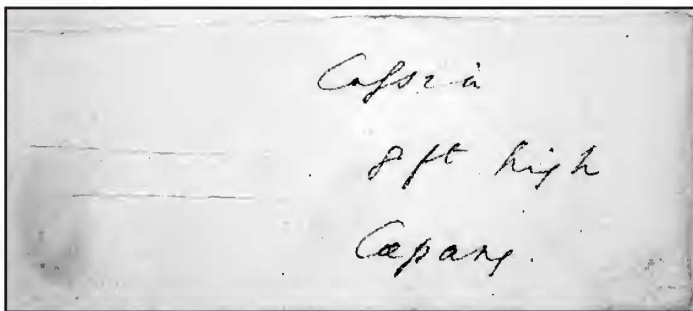 Cassia
8 ft high
Copang.